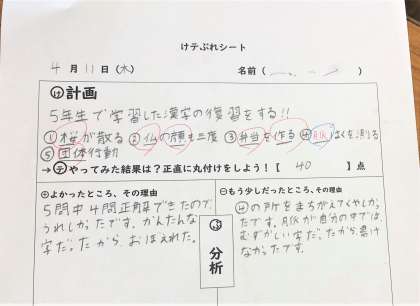 けテぶれシート
4月11日(木) 名前( )
け計画
5年生で学習した漢字の復習をする!!
①桜が散る ②仏の顔も三度 ③弁当を作る ④脈はくを測る
⑤団体行動
→テやってみた結果は?正直に丸付けをしよう!【 40 】点
⊕よかったところ、その理由
5問中4問正解できたので
うれしかったです。かんたんな
字だ。たから、おぼえれた。
ぶ
分析
⊖もう少しだったところ、その理由
④の所をまちがえてくやしかっ
たです。脈が自分の中では
むずかしい字だったから書け
なかったです。